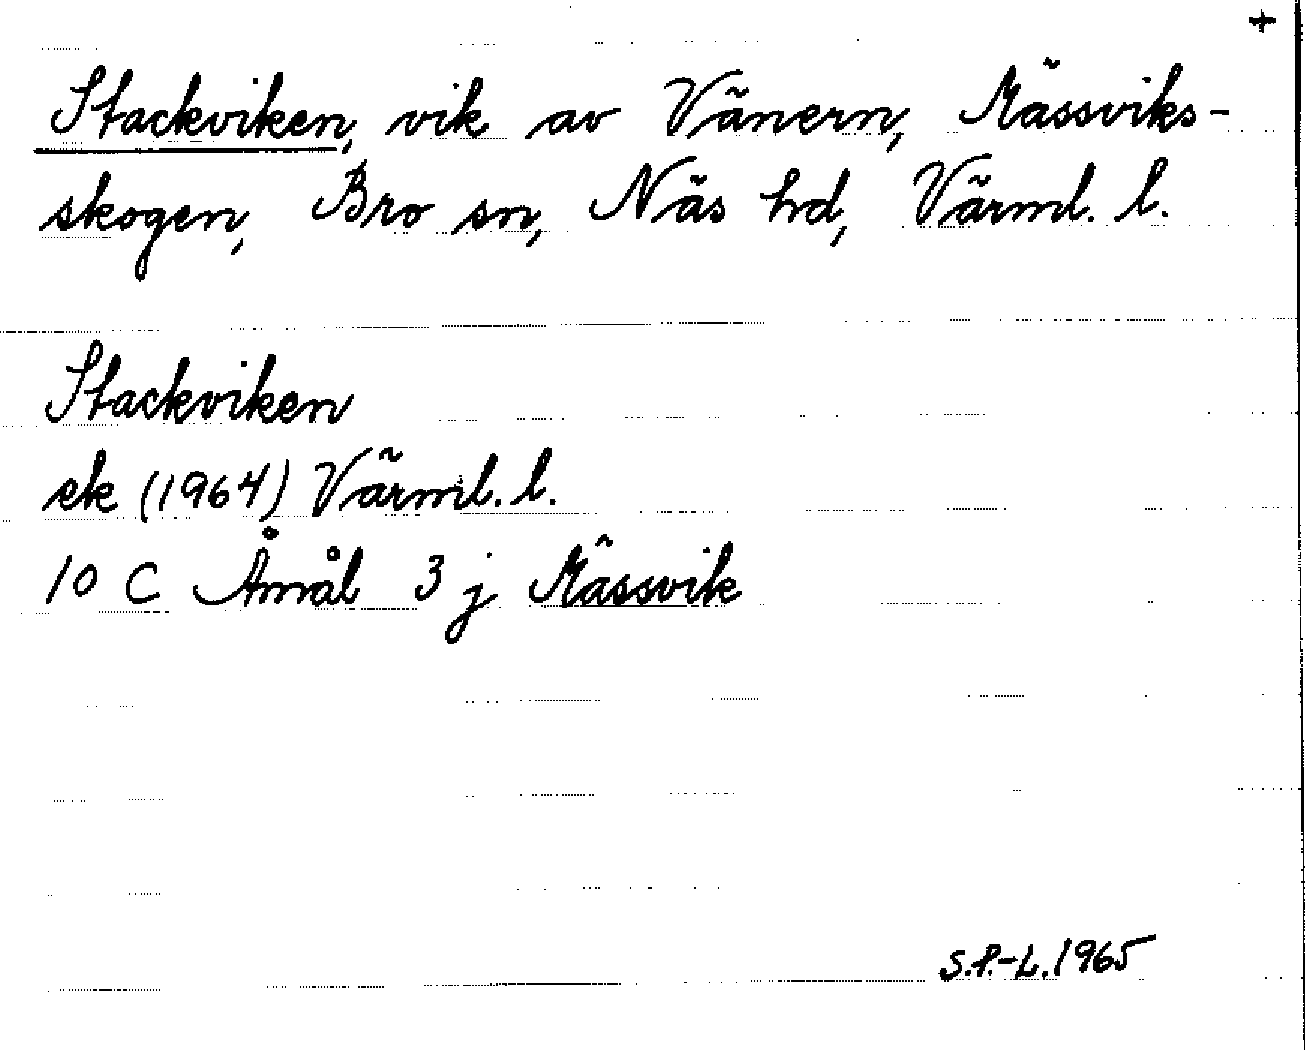 +
Stackviken, vik av Vänern, Mässviks-
skogen, Bro sn, Näs hd, Värml. l.
Stackviken
ek (1964) Värml. l.
10 C Åmål 3 j Mässvik
S.P.-L. 1965